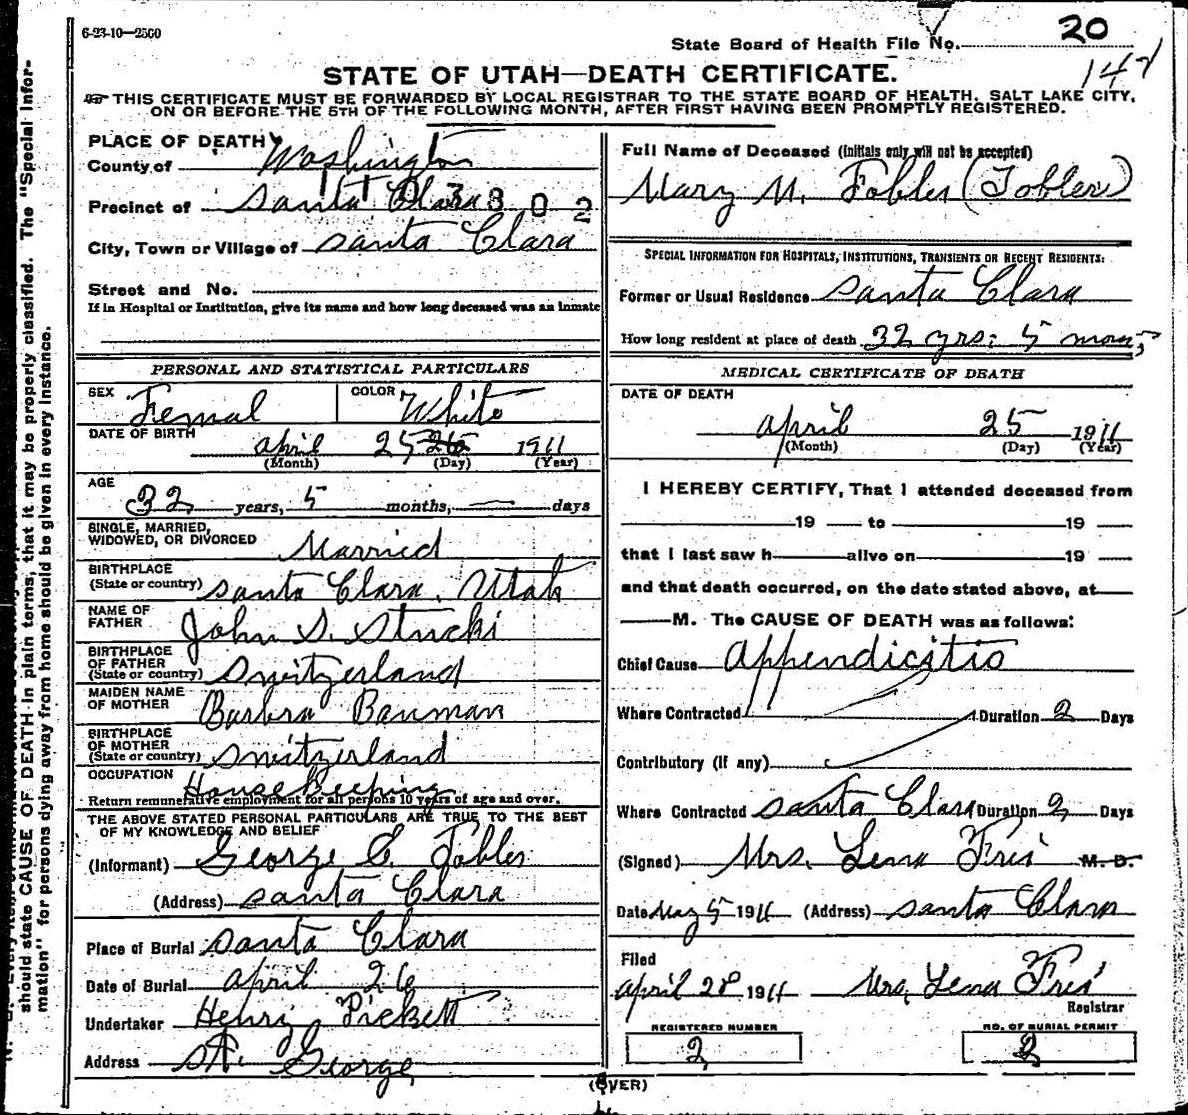 6-23-10—2500
State Board of Health File No. 20
147
STATE OF UTAH—DEATH CERTIFICATE.
THIS CERTIFICATE MUST BE FORWARDED BY LOCAL REGISTRAR TO THE STATE BOARD OF HEALTH, SALT LAKE CITY,
ON OR BEFORE THE 5TH OF THE FOLLOWING MONTH, AFTER FIRST HAVING BEEN PROMPTLY REGISTERED.
PLACE OF DEATH
County of Washington
Precinct of Santa Clara 3802
City, Town or Village of Santa Clara
Street and No.
If in Hospital or Institution, give its name and how long deceased was an inmate
PERSONAL AND STATISTICAL PARTICULARS
SEX Femal COLOR White
DATE OF BIRTH April 25 26 1911
(Month) (Day) (Year)
AGE
32 years, 5 months, — days
SINGLE, MARRIED,
WIDOWED, OR DIVORCED Married
BIRTHPLACE
(State or country) Santa Clara, Utah
NAME OF
FATHER John S. Stucki
BIRTHPLACE
OF FATHER
(State or country) Switzerland
MAIDEN NAME
OF MOTHER Barbra Bauman
BIRTHPLACE
OF MOTHER
(State or country) Switzerland
OCCUPATION House Keeping
Return remunerative employment for all persons 10 years of age and over.
THE ABOVE STATED PERSONAL PARTICULARS ARE TRUE TO THE BEST
OF MY KNOWLEDGE AND BELIEF
(Informant) George E. Tobler
(Address) Santa Clara
Place of Burial Santa Clara
Date of Burial April 26
Undertaker Henry Pickett
Address St. George
Full Name of Deceased (Initials only will not be accepted)
Mary M. Tobler (Tobler)
SPECIAL INFORMATION FOR HOSPITALS, INSTITUTIONS, TRANSIENTS OR RECENT RESIDENTS:
Former or Usual Residence Santa Clara
How long resident at place of death 32 yrs. 5 mons,
MEDICAL CERTIFICATE OF DEATH
DATE OF DEATH
April 25 1911
(Month) (Day) (Year)
I HEREBY CERTIFY, That I attended deceased from
19 — to 19 —
that I last saw h— alive on 19 —
and that death occurred, on the date stated above, at
—M. The CAUSE OF DEATH was as follows:
Chief Cause Appendicitis
Where Contracted Duration 2 Days
Contributory (If any)
Where Contracted Santa Clara Duration 2 Days
(Signed) Mrs. Lena Frei M. D.
Date May 5 1911 (Address) Santa Clara
Filed
April 28 1911 Mrs. Lena Frei
Registrar
REGISTERED NUMBER
2
NO. OF BURIAL PERMIT
2
(OVER)
should state CAUSE OF DEATH in plain terms, that it may be properly classified. The "Special Infor-
mation" for persons dying away from home should be given in every instance.